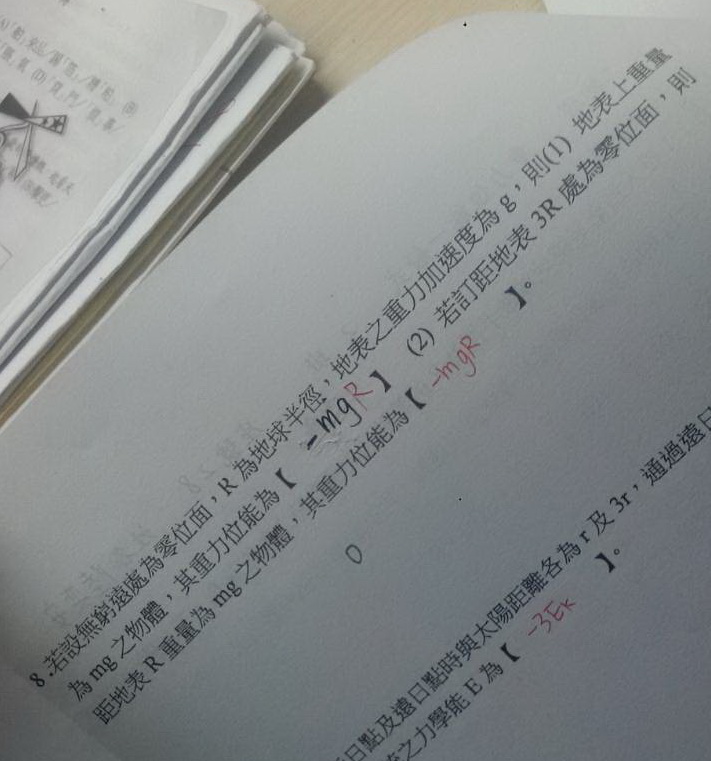 8.若設無窮遠處為零位面，R 為地球半徑，地表之重力加速度為 g，則(1) 地表上重量
為 mg 之物體，其重力位能為【 -mgR 】 (2) 若訂距地表 3R 處為零位面，則
距地表 R 重量為 mg 之物體，其重力位能為【 -mgR 】。
0
日點及遠日點時與太陽距離各為 r 及 3r，通過遠日
之力學能 E 為【 -3Ek 】。